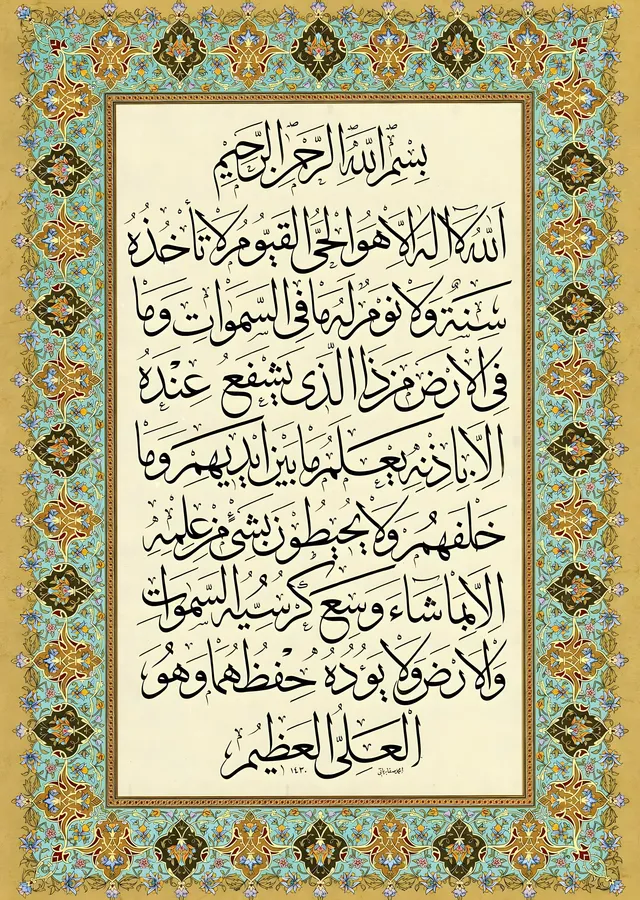 بسم الله الرحمن الرحيم
الله لا اله الا هو الحي القيوم لا تأخذه
سنة ولا نوم له ما في السموات وما
في الارض من ذا الذي يشفع عنده
الا باذنه يعلم ما بين ايديهم وما
خلفهم ولا يحيطون بشيء من علمه
الا بما شاء وسع كرسيه السموات
والارض ولا يؤده حفظهما وهو
العلي العظيم
١٤٣٠